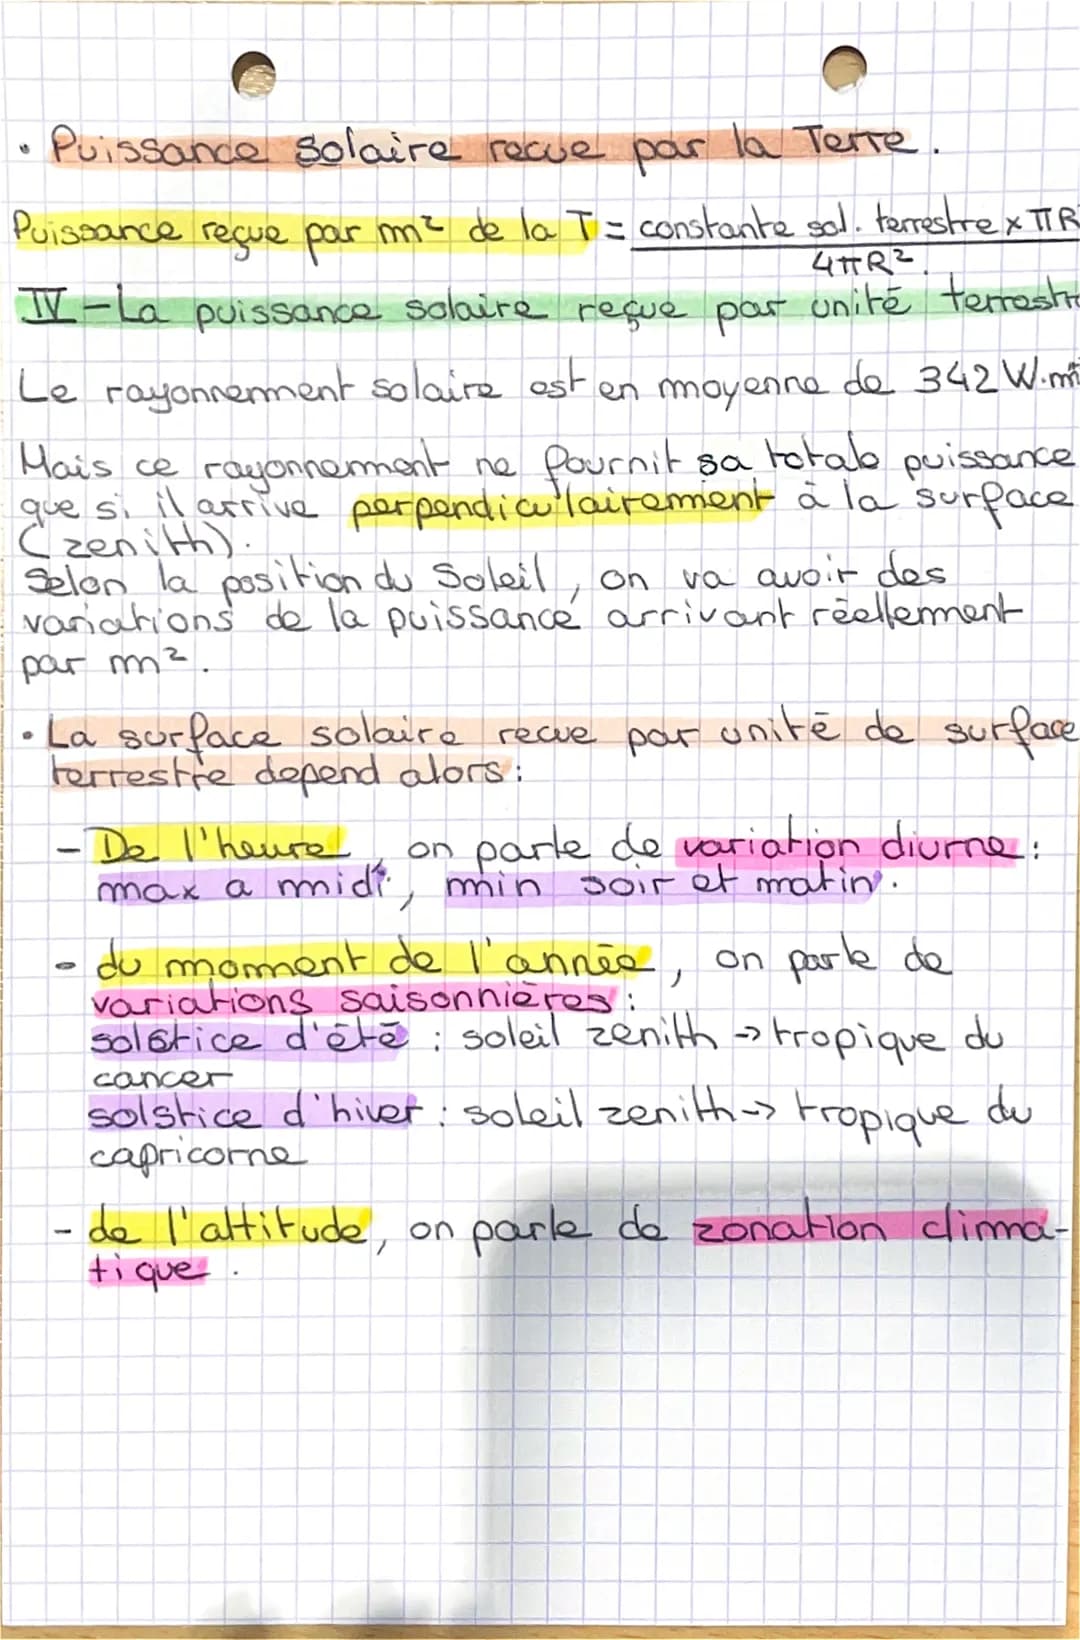 • Puissance solaire recue par la Terre.
Puissance reçue par m² de la T = constante sol. terrestre x πR
4πR².
IV - La puissance solaire reçue par unité terrestre
Le rayonnement solaire est en moyenne de 342 W.m
Mais ce rayonnement ne fournit sa totale puissance
que si il arrive perpendiculairement à la surface
(zenith).
Selon la position du Soleil, on va avoir des
variations de la puissance arrivant réellement
par m².
• La surface solaire recue par unité de surface
terrestre depend alors :
- De l'heure, on parle de variation diurne :
max a midi, min soir et matin.
- du moment de l'année, on parle de
variations saisonnières :
solstice d'été : soleil zenith -> tropique du
cancer
solstice d'hiver : soleil zenith -> tropique du
capricorne
- de l'attitude, on parle de zonation clima-
tique.